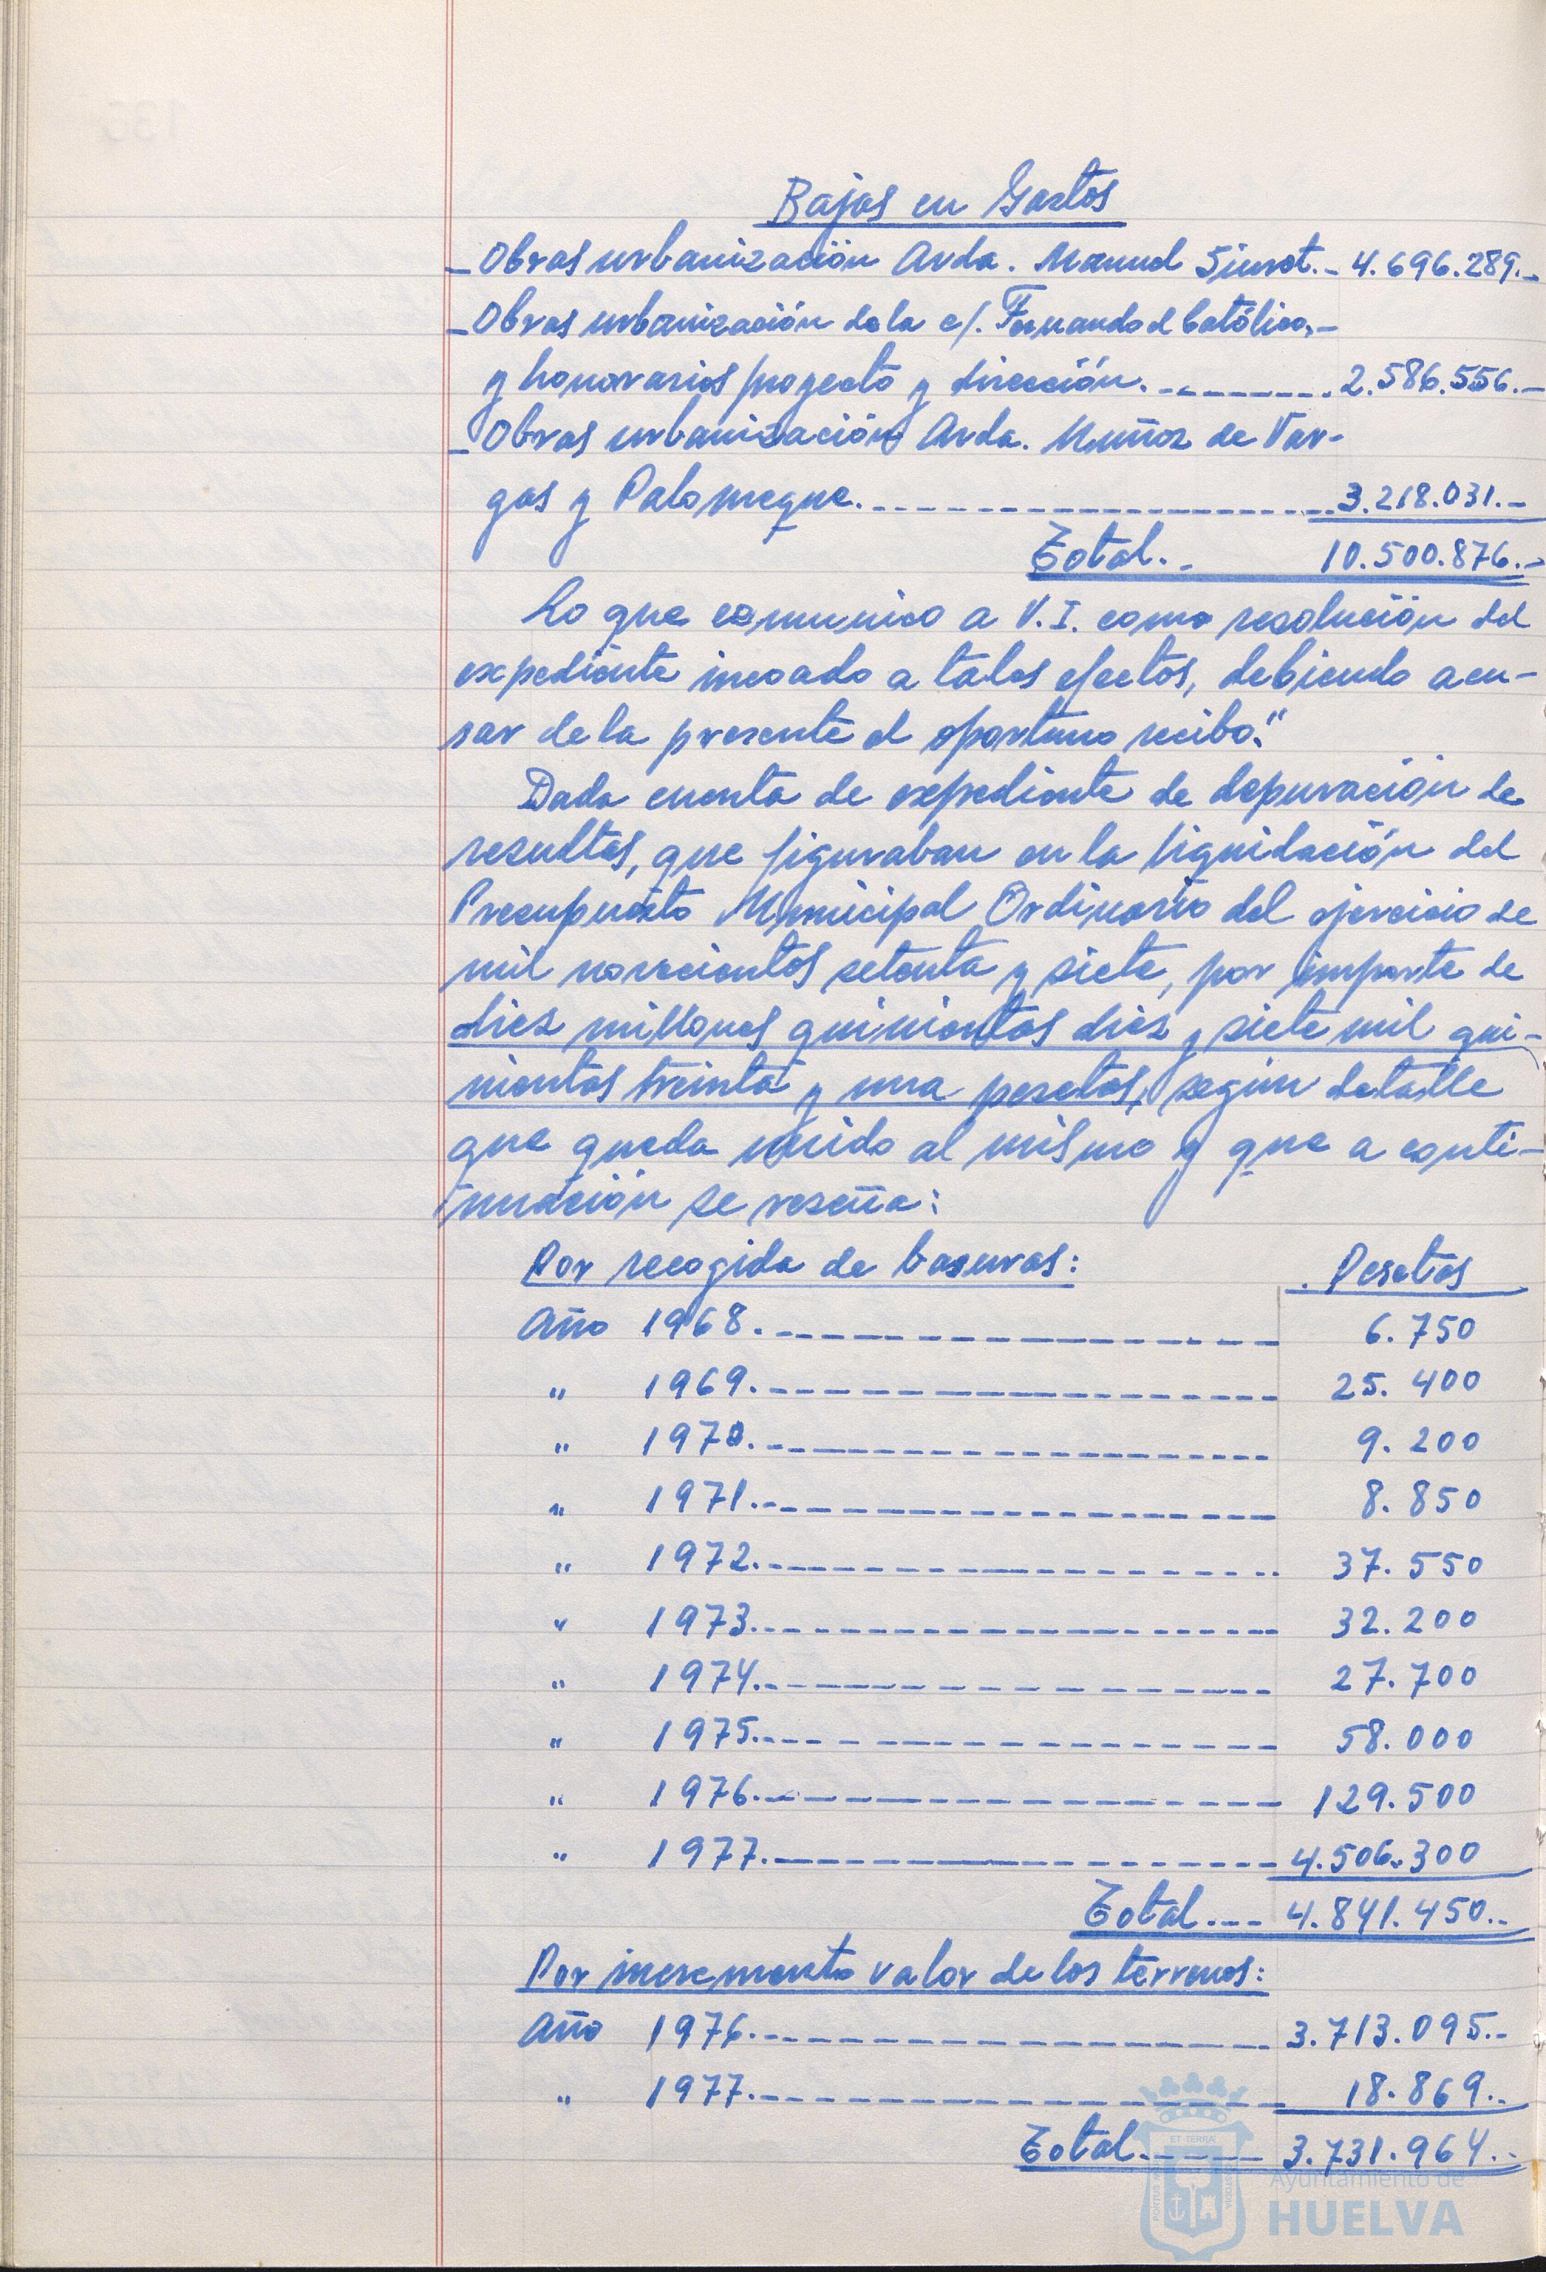 Bajas en Gastos
_Obras urbanización Avda. Manuel Siurot._ 4.696.289._
_Obras urbanización de la c/. Fernando el Católico,_
y honorarios proyecto y dirección.________.2.586.556._
_Obras urbanización Avda. Muñoz de Var-
gas y Palomeque.____________________3.218.031._
Total._ 10.500.876._
Lo que comunico a V.I. como resolución del
expediente incoado a tales efectos, debiendo acu-
sar de la presente el oportuno recibo."
Dada cuenta de expediente de depuración de
resultas, que figuraban en la liquidación del
Presupuesto Municipal Ordinario del ejercicio de
mil novecientos setenta y siete, por importe de
diez millones quinientos diez y siete mil qui-
nientas treinta y una pesetas, según detalle
que queda unido al mismo y que a conti-
nuación se reseña:
Por recogida de basuras: Pesetas
Año 1968.____________________ 6.750
" 1969.____________________ 25.400
" 1970.____________________ 9.200
" 1971.____________________ 8.850
" 1972.____________________ 37.550
" 1973.____________________ 32.200
" 1974.____________________ 27.700
" 1975.____________________ 58.000
" 1976.____________________ 129.500
" 1977.____________________ 4.506.300
Total.___ 4.841.450._
Por incremento valor de los terrenos:
Año 1976.____________________ 3.713.095._
" 1977.____________________ 18.869._
Total._____ 3.731.964._
ET TERRA
Ayuntamiento de
HUELVA